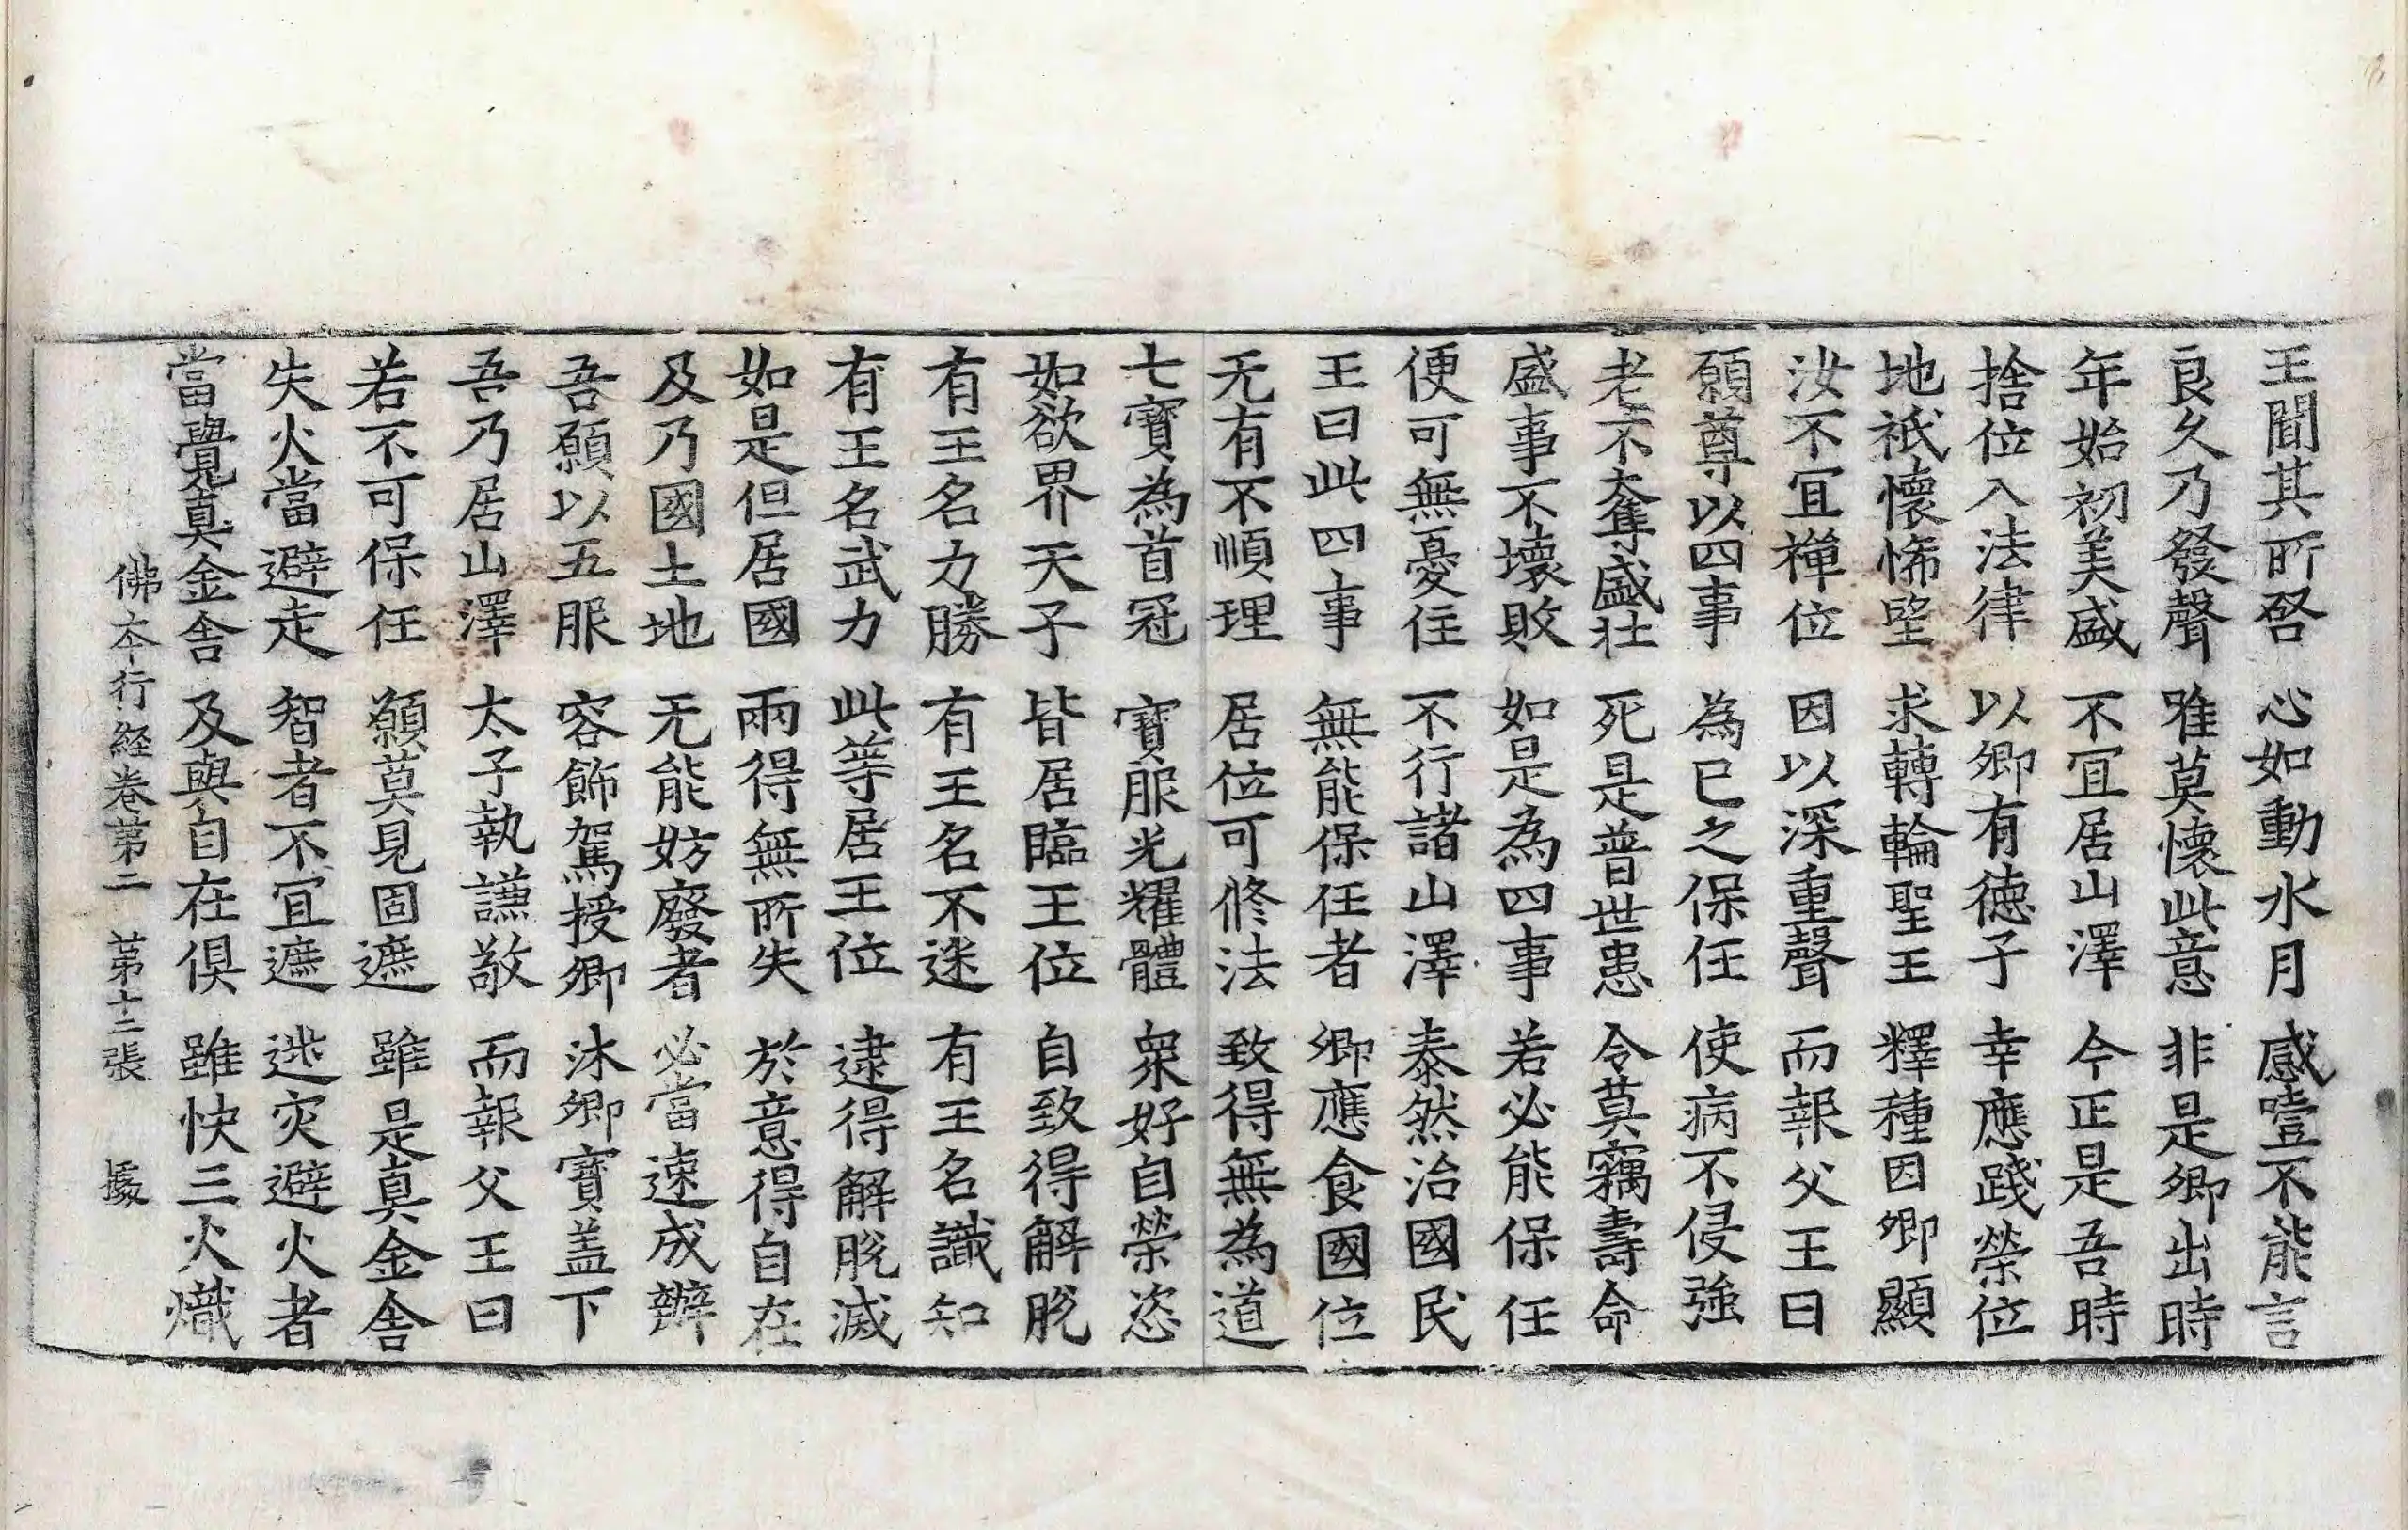 王聞其所啓 心如動水月 感噎不能言
良久乃發聲 唯莫懷此意 非是卿出時
年始初美盛 不宜居山澤 今正是吾時
捨位入法律 以卿有德子 幸應踐榮位
地祇懷怖望 求轉輪聖王 釋種因卿顯
汝不宜禪位 因以深重聲 而報父王曰
願尊以四事 為已之保任 使病不侵強
老不奪盛壯 死是普世患 令莫竊壽命
盛事不壞敗 如是為四事 若必能保任
便可無憂住 不行諸山澤 泰然治國民
王曰此四事 無能保任者 卿應食國位
无有不順理 居位可修法 致得無為道
七寶為首冠 寶服光耀體 衆好自榮恣
如欲界天子 皆居臨王位 自致得解脫
有王名力勝 有王名不迷 有王名識知
有王名武力 此等居王位 逮得解脫滅
如是但居國 兩得無所失 於意得自在
及乃國土地 无能妨廢者 必當速成辦
吾願以五服 容飾駕授卿 沐卿寶盖下
吾乃居山澤 太子執謙敬 而報父王曰
若不可保任 願莫見固遮 雖是真金舍
失火當避走 智者不宜遮 逃灾避火者
當覺真金舍 及與自在俱 雖快三火熾
佛本行経卷第二 第十二張 㩀